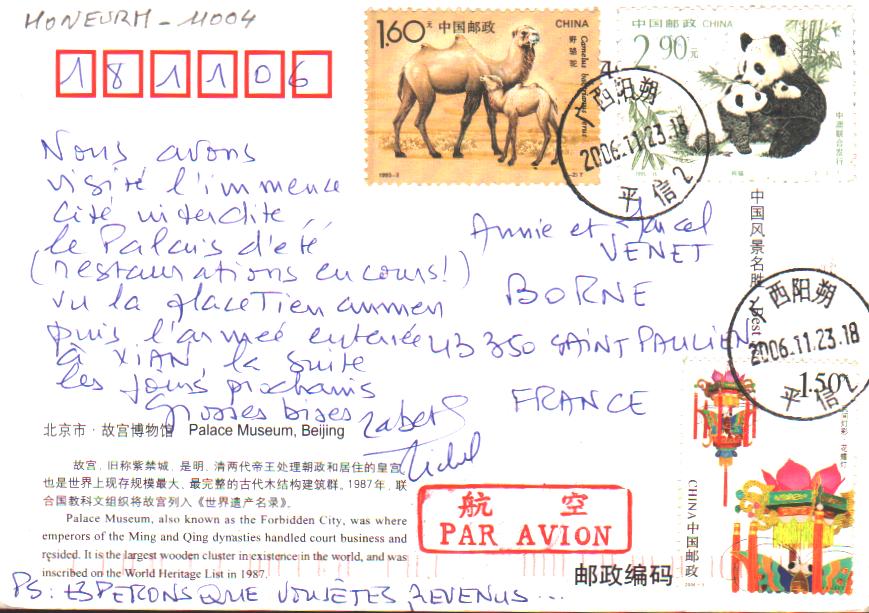 HONEURH - 11004
181106
1.60元 中国邮政 CHINA
野骆驼
Camelus bactrianus ferus
1993-3
中国邮政 CHINA
2.90元
中澳联合发行
广西阳朔
2006.11.23.18
平信2
Nous avons
visité l'immence
cité interdite,
le Palais d'eté
(restaurations en cours!)
vu la place Tien anmen
puis l'armeé enterrée
à XIAN, la suite
les jours prochains
Grosses bises
Michel
Annie et Marcel
VENET
BORNE
43350 SAINT PAULIEN
FRANCE
中国风景名胜 Best
广西阳朔
2006.11.23.18
平信2
1.50元
花篮灯
CHINA 中国邮政
北京市·故宫博物馆 Palace Museum, Beijing
故宫，旧称紫禁城，是明、清两代帝王处理朝政和居住的皇宫，
也是世界上现存规模最大、最完整的古代木结构建筑群。1987年，联
合国教科文组织将故宫列入《世界遗产名录》。
Palace Museum, also known as the Forbidden City, was where
emperors of the Ming and Qing dynasties handled court business and
resided. It is the largest wooden cluster in existence in the world, and was
inscribed on the World Heritage List in 1987.
航 空
PAR AVION
邮政编码
PS: ESPERONS QUE VOUS ÊTES REVENUS...